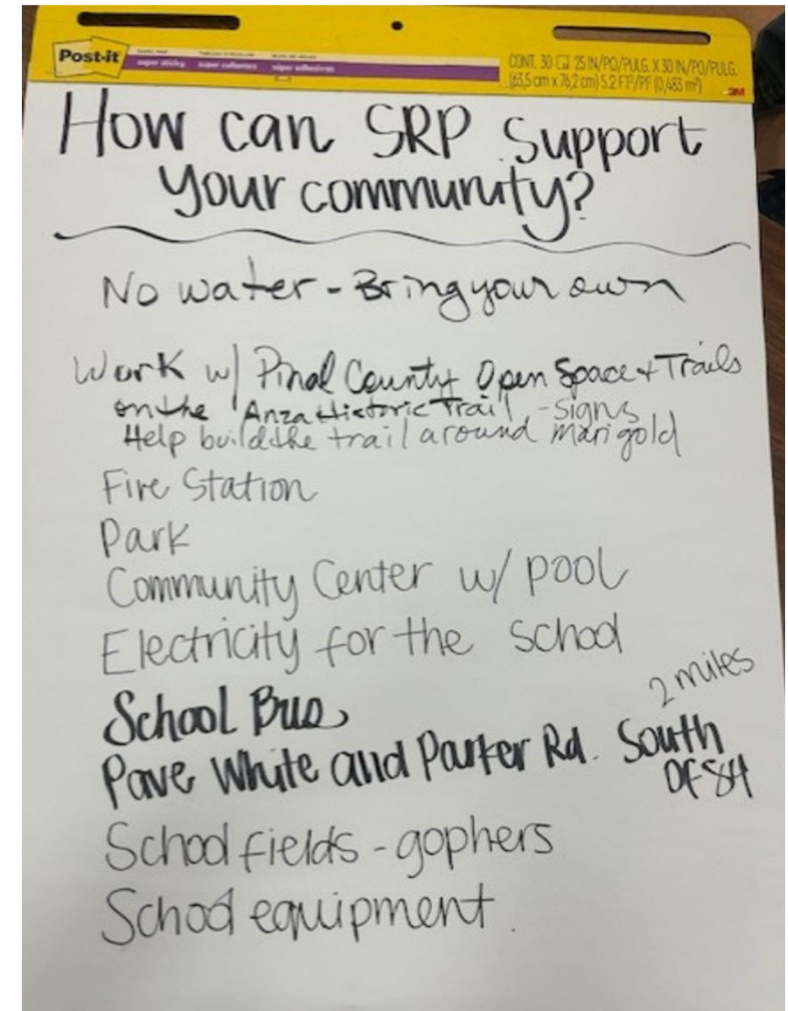 Post-it
super sticky super collantes súper adhesivas
CONT. 30 25 IN/PO/PULG. X 30 IN/PO/PULG.
(63,5 cm x 76,2 cm) 5.2 FT²/PI² (0,483 m²)
3M
How can SRP Support
your community?
No water - Bring your own
Work w/ Pinal County Open Space + Trails
on the Anza Historic Trail - Signs
Help build the trail around Marigold
Fire Station
Park
Community Center w/ pool
Electricity for the School
School Bus
2 miles
Pave White and Parker Rd. South
OF 84
School fields - gophers
School equipment.